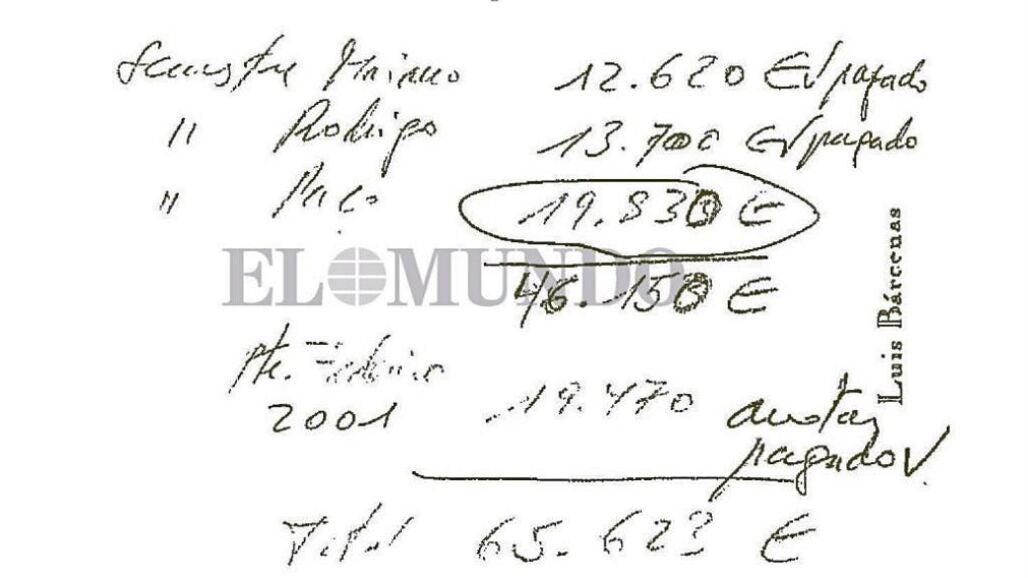 Semestre Mariano 12.620 € √ pagado
" Rodrigo 13.700 € √ pagado
" Paco 19.830 €
EL MUNDO
46.150 €
Pte.
2001 19.470 anotar
pagado √.
Total 65.623 €
Luis Bárcenas